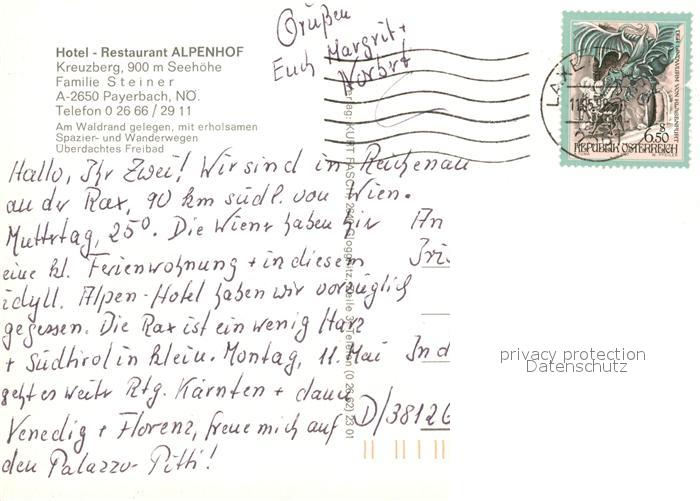 Hotel - Restaurant ALPENHOF
Kreuzberg, 900 m Seehöhe
Familie Steiner
A-2650 Payerbach, NÖ.
Telefon 0 26 66 / 29 11
Am Waldrand gelegen, mit erholsamen
Spazier- und Wanderwegen
Überdachtes Freibad
Grüßen
Euch Margrit +
Norbert
Hallo, Ihr Zwei! Wir sind in Reichenau
an der Rax, 90 km südl. von Wien.
Muttertag, 25°. Die Wiener haben hier
eine kl. Ferienwohnung + in diesem
idyll. Alpen-Hotel haben wir vorzüglich
gegessen. Die Rax ist ein wenig Harz
+ Südtirol in klein. Montag, 11. Mai
geht es weiter Rtg. Kärnten + dann
Venedig + Florenz, freue mich auf
den Palazzo-Pitti!
An
In d
D/3812
DER LINDWURM VON KLAGENFURT
6.50
REPUBLIK ÖSTERREICH
privacy protection
Datenschutz